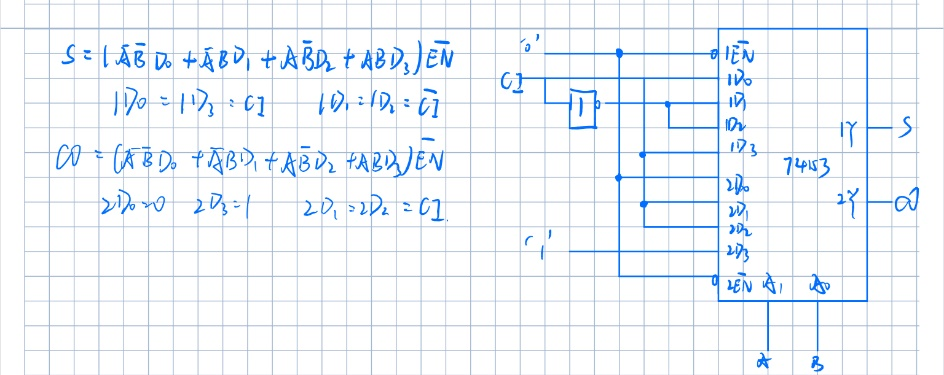 S = (A̅B̅D₀ + A̅BD₁ + AB̅D₂ + ABD₃)E̅N̅
1D₀ = 1D₃ = CI 1D₁ = 1D₂ = C̅I̅
CO = (A̅B̅D₀ + A̅BD₁ + AB̅D₂ + ABD₃)E̅N̅
2D₀=0 2D₃=1 2D₁=2D₂ = CI.
'0'
CI
1
'1'
1E̅N̅
1D₀
1D₁
1D₂
1D₃
2D₀
2D₁
2D₂
2D₃
2E̅N̅ A₁ A₀
1Y S
74153
2Y CO
A B